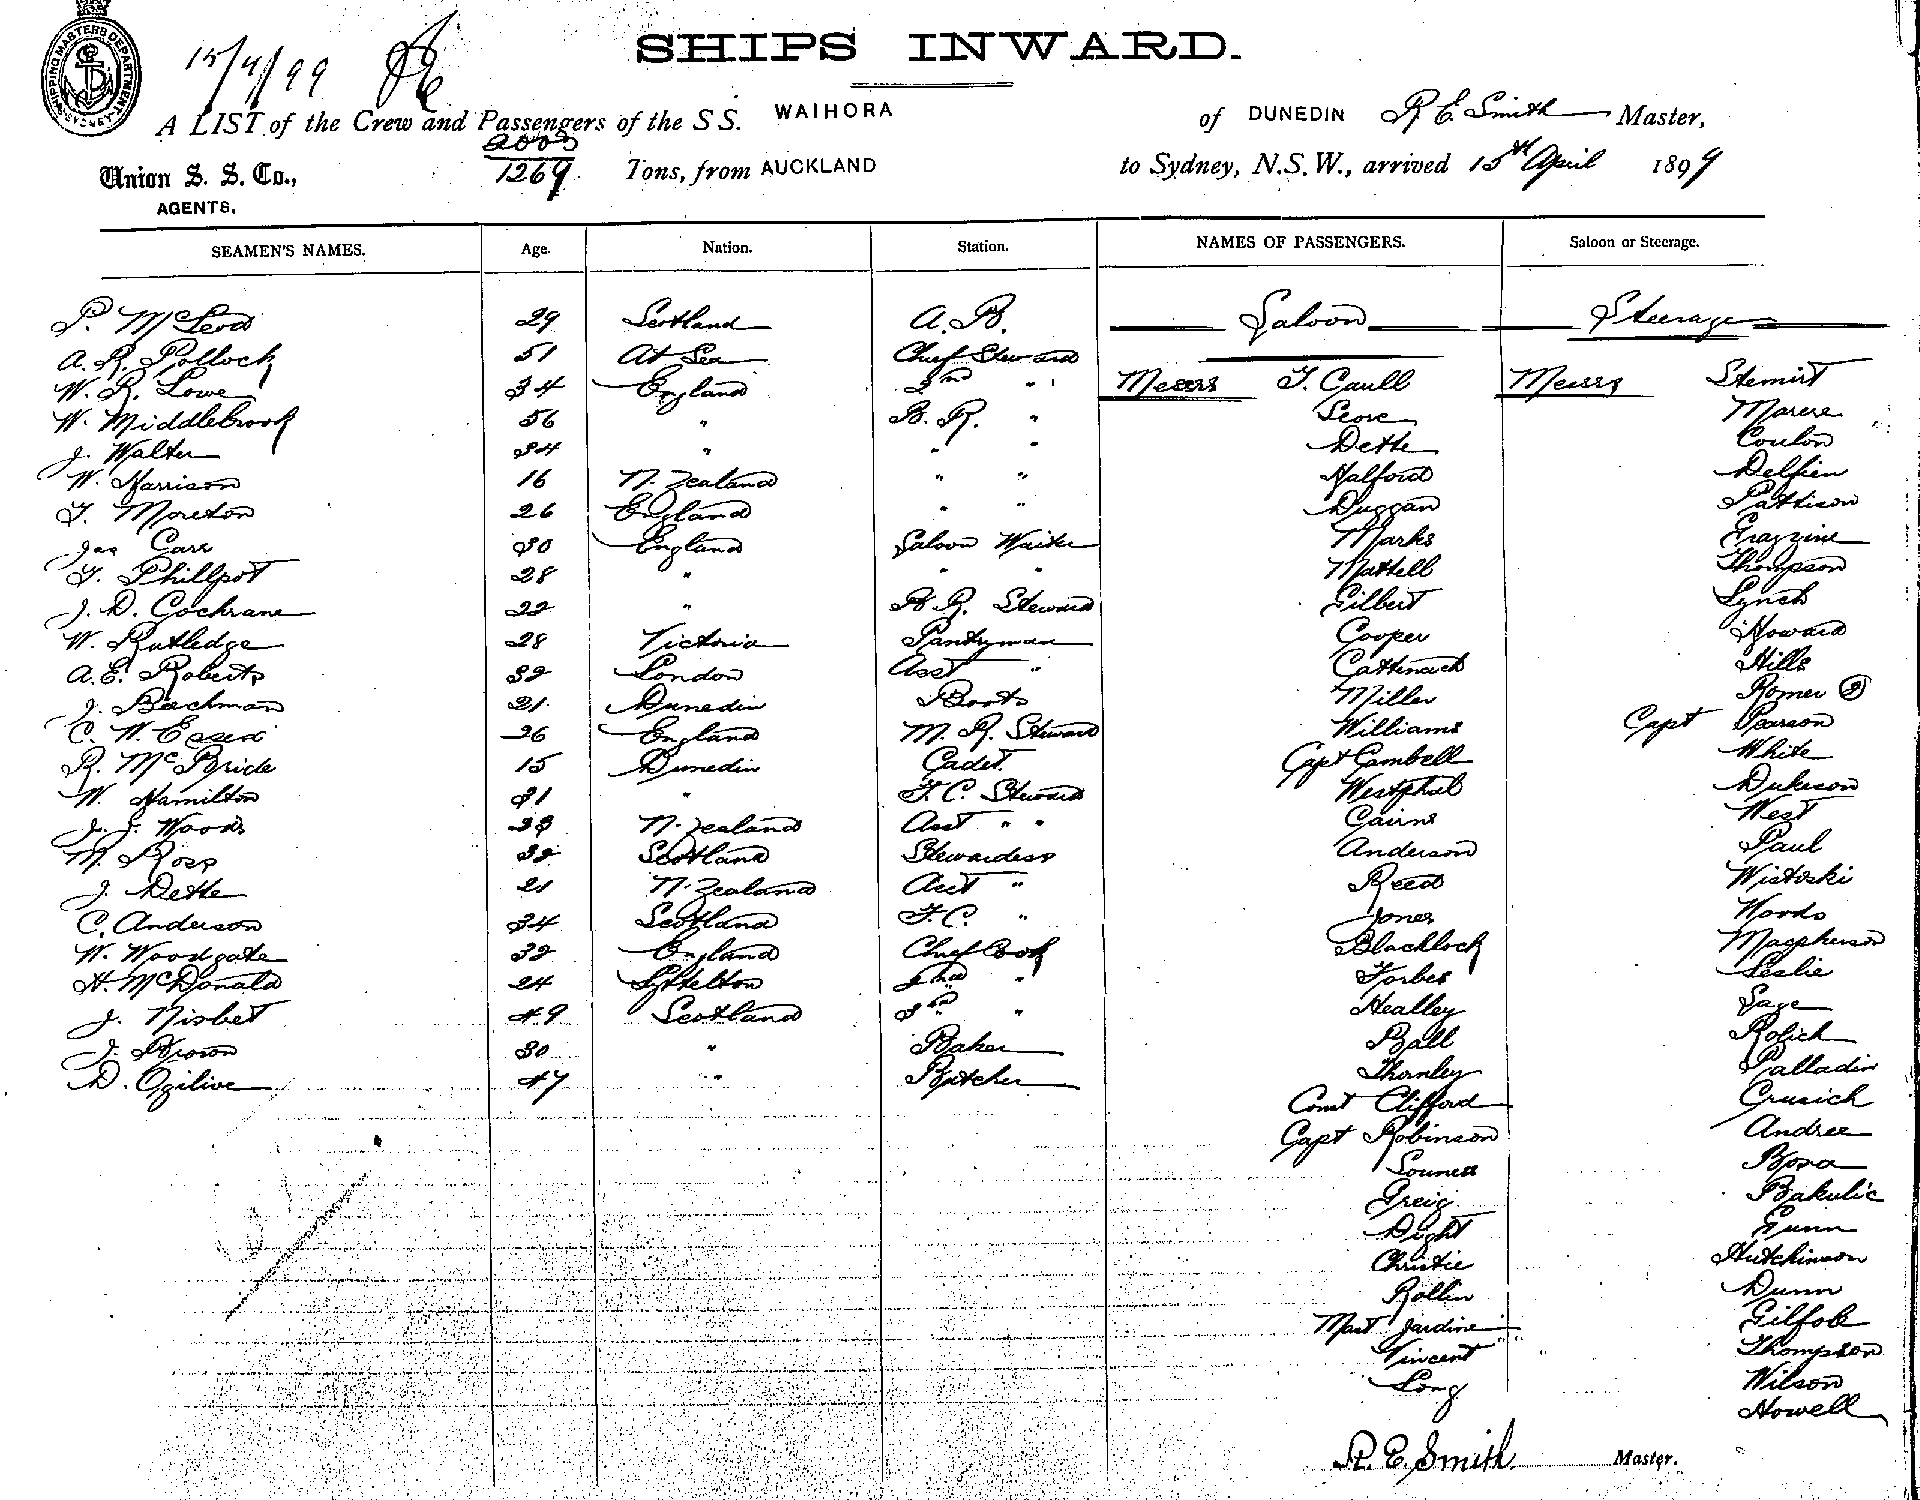 SHIPPING MASTER'S DEPARTMENT SYDNEY
15/4/99
SHIPS INWARD.
A LIST of the Crew and Passengers of the S S. WAIHORA of DUNEDIN R E. Smith Master,
2003
Union S. S. Co., 1269 Tons, from AUCKLAND to Sydney, N.S.W., arrived 15th April 1899
AGENTS.
SEAMEN'S NAMES. Age. Nation. Station. NAMES OF PASSENGERS. Saloon or Steerage.
P. McLeod 29 Scotland A.B. Saloon Steerage
A. R. Pollock 51 At Sea Chief Steward
W. R. Lowe 34 England 2nd " Messrs T. Caull Messrs Stemirt
W. Middlebrook 56 " B. R. " Scove Marere
J. Walter 34 " " " Dette Coulon
W. Harrison 16 N. Zealand " " Halford Delfien
T. Moreton 26 England " " Duggan Pattison
Jas Carr 30 England Saloon Waiter Marks Erazzine
T. Phillpot 28 " " " Mattell Thompson
J. D. Cochrane 22 " B R. Steward Gilbert Lynch
W. Rutledge 28 Victoria Pantryman Cooper Howard
A. E. Roberts 32 London Asst " Cattenach Hills
J. Bachman 21 Dunedin Boots Miller Romer (2)
C. W. Essex 26 England M. R. Steward Williams Capt Pearson
R. McBride 15 Dunedin Cadet. Capt Cambell White
W. Hamilton 31 " F. C. Steward Westphal Dukeson
J. J. Woods 33 N. Zealand Asst " " Cairns West
M. Ross 32 Scotland Stewardess Anderson Paul
J. Dette 21 N. Zealand Asst " Reed Wistoski
C. Anderson 34 Scotland F. C. " Jones Woods
W. Woodgate 32 England Chief Cook Blacklock Macpherson
H. McDonald 24 Lyttelton 2nd " Forbes Leslie
J. Nisbet 49 Scotland 3rd " Healley Sage
J. Brown 30 " Baker Ball Rolich
D. Ogilive 47 " Butcher Thonley Palladin
Comt Clifford Crusich
Capt Robinson Andree
Souness Bosa
Greig Bakulic
Dight Gunn
Christie Hutchinson
Rollin Dunn
Mast Jardine Gilfole
Vincent Thompson
Long Wilson
Howell
R. E. Smith Master.